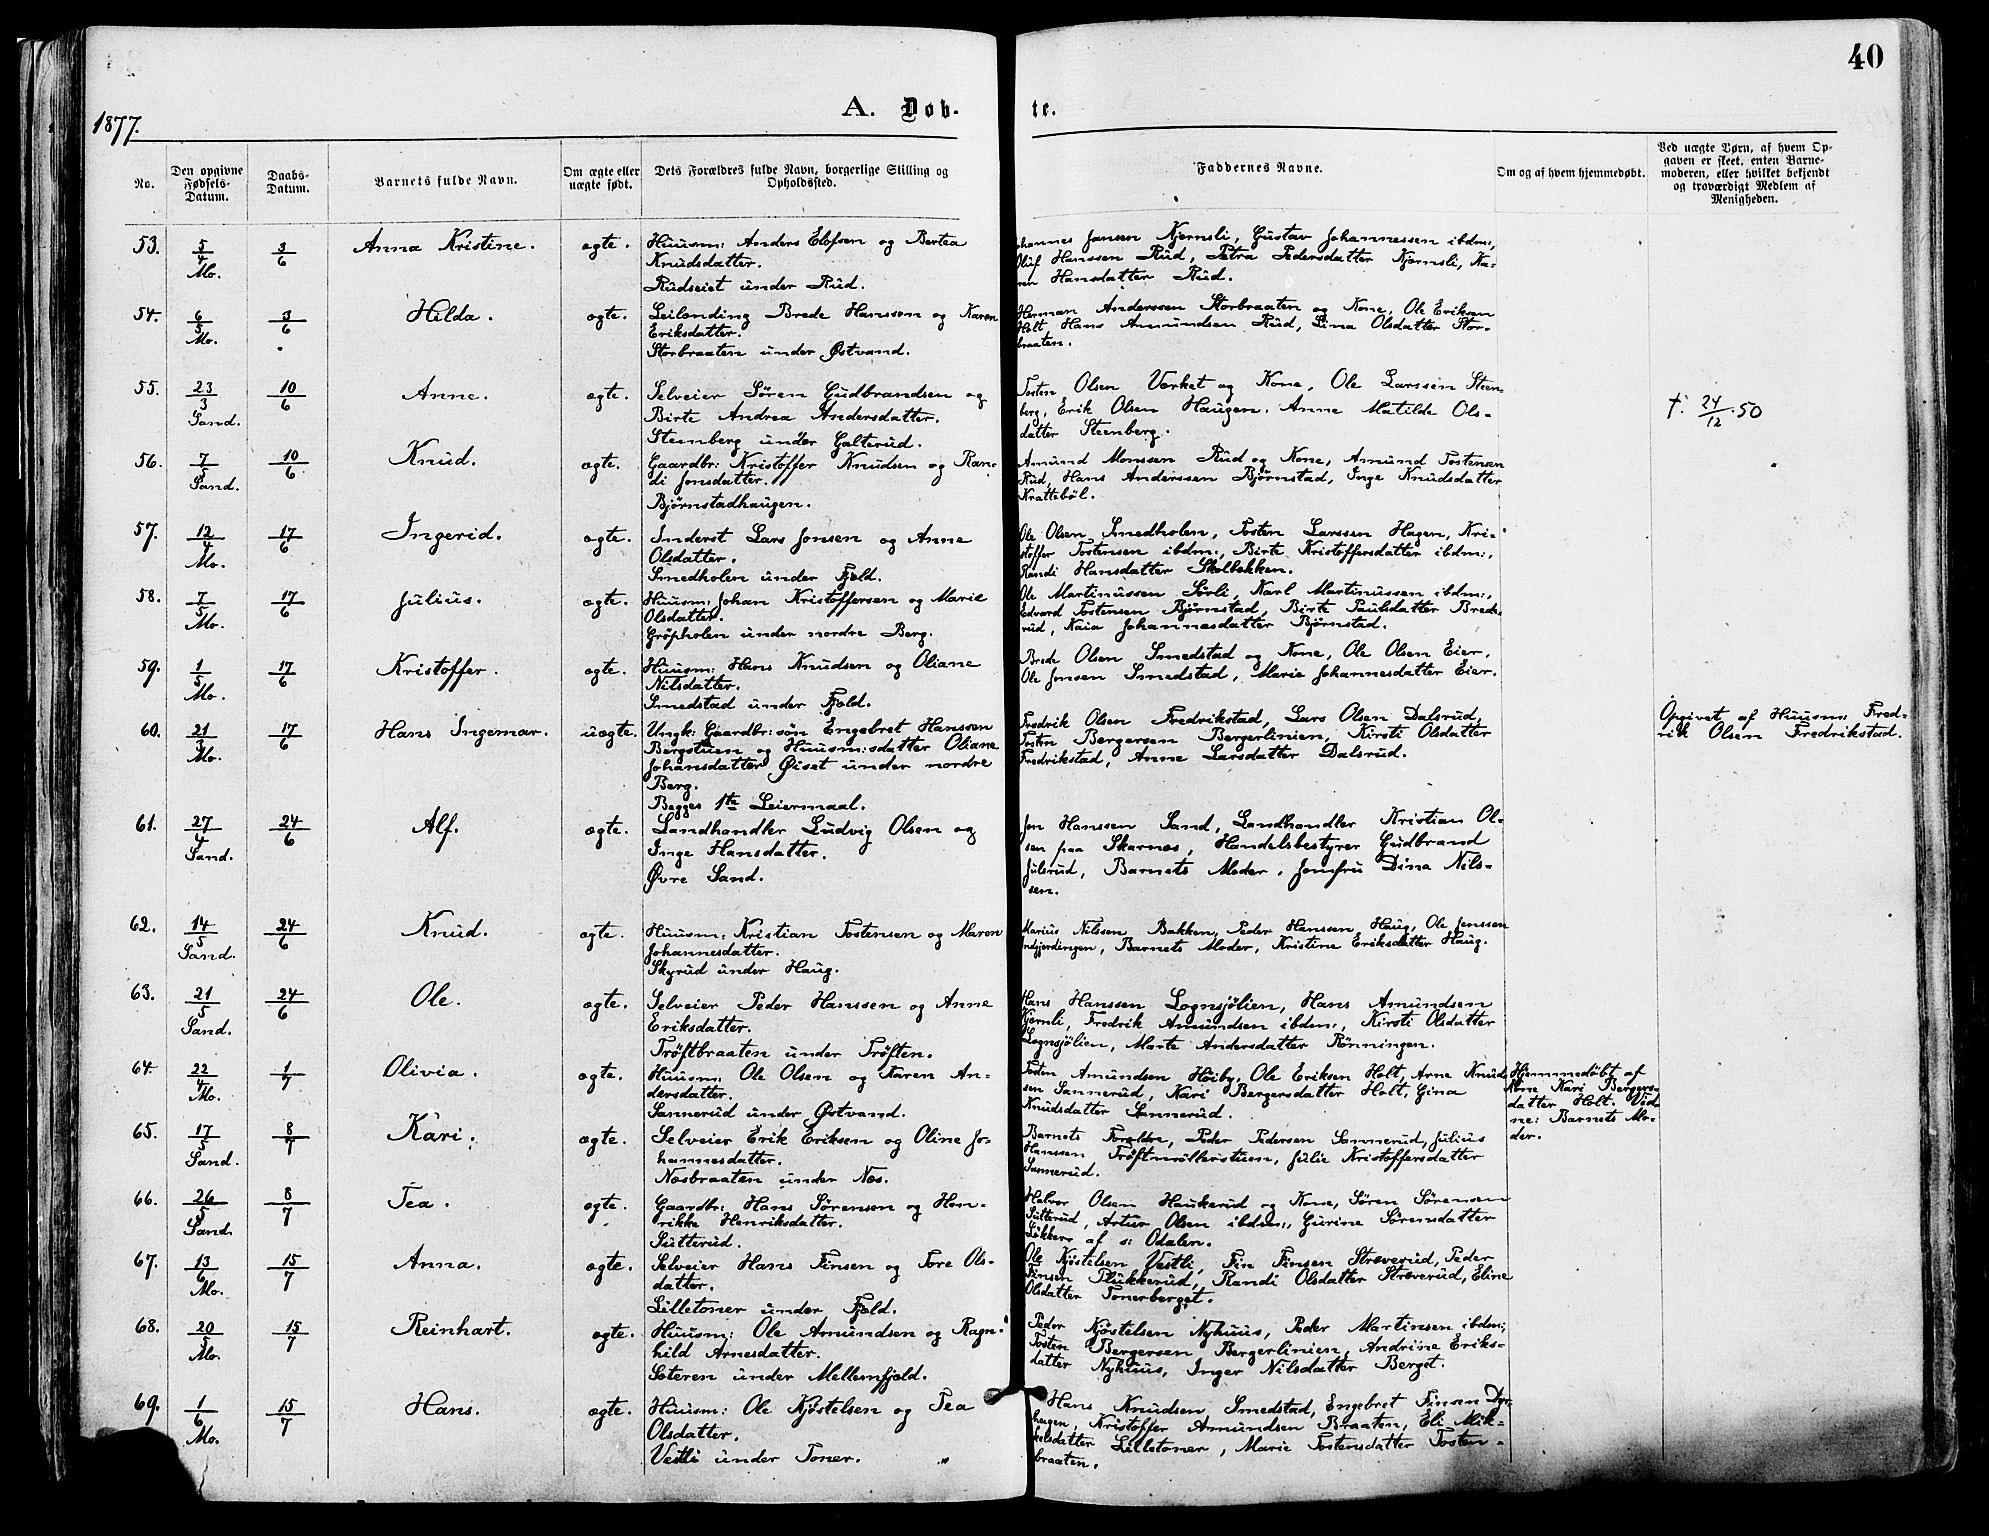 40
1877.
A. Døb-
te.
No.
Den opgivne Fødsels-Datum.
Daabs-Datum.
Barnets fulde Navn.
Om ægte eller uægte født.
Dets Forældres fulde Navn, borgerlige Stilling og Opholdssted.
Faddernes Navne.
Om og af hvem hjemmedøbt.
Ved uægte Børn, af hvem Opgaven er skeet, enten Barnemoderen, eller hvilket bekjendt og troværdigt Medlem af Menigheden.
53. 5/4 Mo. 3/6 Anna Kristine. ægte.
Huusm: Anders Elofsen og Bertea
Knudsdatter.
Rudseiet under Rud.
Johannes Jansen Kjernsli, Gustav Johannessen ibdm:,
Oluf Hanssen Rud, Petra Pedersdatter Kjernsli, Ka-
ren Hansdatter Rud.
54. 6/5 Mo. 3/6 Hilda. ægte.
Leilending Brede Hanssen og Karen
Eriksdatter.
Storbraaten under Østvand.
Herman Anderssen Storbraaten og Kone, Ole Eriksen
Holt, Hans Amundsen Rud, Lina Olsdatter Stor-
braaten.
55. 23/3 Sand. 10/6 Anne. ægte.
Selveier Søren Gudbrandsen og
Birte Andrea Andersdatter.
Steenberg under Galterud.
Tosten Olsen Værket og Kone, Ole Larssen Steen-
berg, Erik Olsen Haugen, Anne Matilde Ols-
datter Steenberg.
†. 24/12.50
56. 7/5 Sand. 10/6 Knud. ægte.
Gaardbr: Kristoffer Knudsen og Ran-
di Jonsdatter.
Bjørnstadhaugen.
Amund Monssen Rud og Kone, Amund Tostensen
Rud, Hans Anderssen Bjørnstad, Inge Knudsdatter
Krattebøl.
57. 12/4 Mo. 17/6 Ingerid. ægte.
Inderst Lars Jonsen og Anne
Olsdatter.
Smedholen under Fjeld.
Ole Olsen Smedholen, Tosten Larssen Hagen, Kri-
stoffer Tostensen ibdm:, Birte Kristoffersdatter ibdm:,
Randi Hansdatter Skolbekken.
58. 7/5 Mo. 17/6 Julius. ægte.
Huusm: Johan Kristoffersen og Marie
Olsdatter.
Grøpholen under nordre Berg.
Ole Martinussen Sørli, Karl Martinussen ibdm:,
Edvard Tostensen Bjørnstad, Birte Paulsdatter Brede-
rud, Kaia Johannesdatter Bjørnstad.
59. 1/5 Mo. 17/6 Kristoffer. ægte.
Huusm: Hans Knudsen og Oliane
Nilsdatter.
Smedstad under Fjeld.
Brede Olsen Smedstad og Kone, Ole Olsen Eier,
Ole Jensen Smedstad, Marie Johannesdatter Eier.
60. 21/3 Mo. 17/6 Hans Ingemar. uægte.
Ungk: Gaardbr:søn Engebret Hanssen
Bergstuen og Huusm:sdatter Oliane
Johansdatter Øiset under nordre
Berg.
Begges 1te Leiermaal.
Fredrik Olsen Fredrikstad, Lars Olsen Dalsrud,
Tosten Bergersen Bergerlinien, Kirsti Olsdatter
Fredrikstad, Anne Larsdatter Dalsrud.
Opgivet af Huusm: Fred-
rik Olsen Fredrikstad.
61. 27/4 Sand. 24/6 Alf. ægte.
Landhandler Ludvig Olsen og
Inge Hansdatter.
Øvre Sand.
Jon Hanssen Sand, Landhandler Kristian Ol-
sen paa Skarnes, Handelsbestyrer Gudbrand
Julsrud, Barnets Moder, Jomfru Dina Nils-
sen.
62. 14/5 Sand. 24/6 Knud. ægte.
Huusm: Kristian Tostensen og Maren
Johannesdatter.
Skyrud under Haug.
Marius Nilssen Bakken, Peder Hanssen Haug, Ole Jenssen
Indgjerdingen, Barnets Moder, Kristine Eriksdatter Haug.
63. 21/5 Sand. 24/6 Ole. ægte.
Selveier Peder Hanssen og Anne
Eriksdatter.
Trøftbraaten under Trøften.
Hans Hanssen Lognsjølien, Hans Amundsen
Kjernli, Fredrik Amundsen ibdm:, Kirsti Olsdatter
Lognsjølien, Marte Andersdatter Rønningen.
64. 22/4 Mo. 1/7 Olivia. ægte.
Huusm: Ole Olsen og Karen An-
dersdatter.
Sannerud under Østvand.
Tosten Amundsen Høiby, Ole Eriksen Holt, Arne Knud-
sen Sannerud, Kari Bergersdatter Holt, Gina
Knudsdatter Sannerud.
Hjemmedøbt af
Kone Kari Bergers-
datter Holt. Vid-
ne: Barnets Mo-
der.
65. 17/5 Sand. 8/7 Kari. ægte.
Selveier Erik Eriksen og Oline Jo-
hannesdatter.
Nosbraaten under Nos.
Barnets Forældre, Peder Pedersen Sannerud, Julius
Hanssen Trøftmøllerstuen, Julie Kristoffersdatter
Sannerud.
66. 26/5 Sand. 8/7 Tea. ægte.
Gaardbr: Hans Sørensen og Hen-
rikke Henriksdatter.
Sutterud.
Halvor Olsen Haukerud og Kone, Søren Sørensen
Sutterud, Artur Olsen ibdm:, Gurine Sørensdatter
Løkker af s: Odalen.
67. 13/6 Mo. 15/7 Anna. ægte.
Selveier Hans Finsen og Tore Ols-
datter.
Lilletoner under Fjeld.
Ole Kjøstelsen Vestli, Fin Finsen Streverud, Peder
Finsen Plukkerud, Randi Olsdatter Streverud, Eline
Olsdatter Tonerberget.
68. 20/5 Mo. 15/7 Reinhart. ægte.
Huusm: Ole Amundsen og Ragn-
hild Arnesdatter.
Sæteren under Mellemfjeld.
Peder Kjøstelsen Nyhuus, Peder Martinsen ibdm:,
Tosten Bergersen Bergerlinien, Andrine Eriks-
datter Nyhuus, Inger Nilsdatter Berget.
69. 1/6 Mo. 15/7 Hans. ægte.
Huusm: Ole Kjøstelsen og Tea
Olsdatter.
Vestli under Toner.
Hans Knudsen Smedstad, Engebret Finsen Dyr-
haugen, Kristoffer Amundsen Braaten, Eli Mik-
kelsdatter Lilletoner, Marie Tostensdatter Tosten-
braaten.